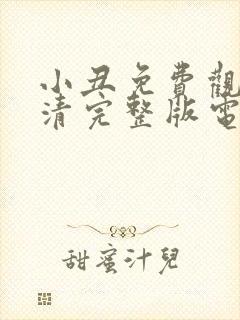 小丑免費觀
清完整版電
甜蜜汁兒